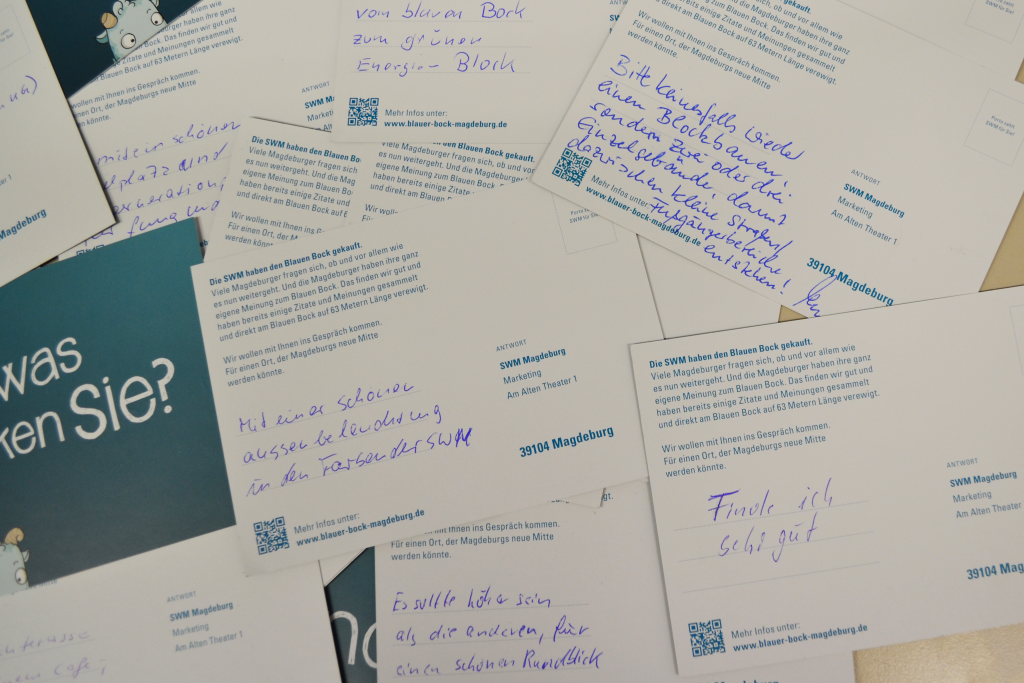 Blauen Bock. Das finden wir gut und
einige Zitate und Meinungen gesammelt
Blauen Bock auf 63 Metern Länge verewigt.
wollen mit Ihnen ins Gespräch kommen.
einen Ort, der Magdeburgs neue Mitte
könnte.
ANTWORT
SWM M
Marketing
Am Alten
mit ein schöner
platz und
Magdeburg
vom blauen Bock
zum grünen
Energie - Block
Mehr Infos unter:
www.blauer-bock-magdeburg.de
Viele Magdeburger fragen sich, ob und vor allem wie
es nun weitergeht. Und die Magdeburger haben ihre ganz
eigene Meinung zum Blauen Bock. Das finden wir gut und
haben bereits einige Zitate und Meinungen gesammelt
und direkt am Blauen Bock auf 63 Metern Länge verewigt.
Wir wollen mit Ihnen ins Gespräch kommen.
Für einen Ort, der Magdeburgs neue Mitte
werden könnte.
Bitte keinesfalls wieder
einen Block bauen,
sondern zwei oder drei
Einzelgebäude, damit
dazwischen kleine Straßen/
Fußgängerbereiche
entstehen!
Mehr Infos unter:
www.blauer-bock-magdeburg.de
ANTWORT
SWM Magdeburg
Marketing
Am Alten Theater 1
39104 Magdeburg
Porto zahlt
SWM für Sie!
Die SWM haben den Blauen Bo
Viele Magdeburger fragen sich
es nun weitergeht. Und die Ma
eigene Meinung zum Blauen Bo
haben bereits einige Zitate
und direkt am Blauen Bock auf 6
Wir wollen mit Ihnen ins G
Für einen Ort, der
werden könn
Die SWM haben den Blauen Bock gekauft.
Viele Magdeburger fragen sich, ob und vor allem wie
es nun weitergeht. Und die Magdeburger haben ihre ganz
eigene Meinung zum Blauen Bock. Das finden wir gut und
haben bereits einige Zitate und Meinungen gesammelt
und direkt am Blauen Bock auf 63 Metern Länge verewigt.
Wir wollen mit Ihnen ins Gespräch kommen.
Für einen Ort, der Magdeburgs neue Mitte
werden könnte.
Mit einer schönen
aussenbeleuchtung
in den Farben der SWM
Mehr Infos unter:
www.blauer-bock-magdeburg.de
ANTWORT
SWM Magdeburg
Marketing
Am Alten Theater 1
39104 Magdeburg
was
ken Sie?
Die SWM haben den Blauen Bock gekauft.
Viele Magdeburger fragen sich, ob und vor allem wie
es nun weitergeht. Und die Magdeburger haben ihre ganz
eigene Meinung zum Blauen Bock. Das finden wir gut und
haben bereits einige Zitate und Meinungen gesammelt
und direkt am Blauen Bock auf 63 Metern Länge verewigt.
Wir wollen mit Ihnen ins Gespräch kommen.
Für einen Ort, der Magdeburgs neue Mitte
werden könnte.
Finde ich
sehr gut
Mehr Infos unter:
www.blauer-bock-magdeburg.de
ANTWORT
SWM Magdeburg
Marketing
Am Alten Theater
39104 Mag
mit Ihnen ins Gespräch kommen.
Für einen Ort, der Magdeburgs neue Mitte
werden könnte.
Es sollte höher sein
als die anderen, für
einen schönen Rundblick
ANTWORT
SWM Magdeburg
Marketing
Am Alten Theater 1